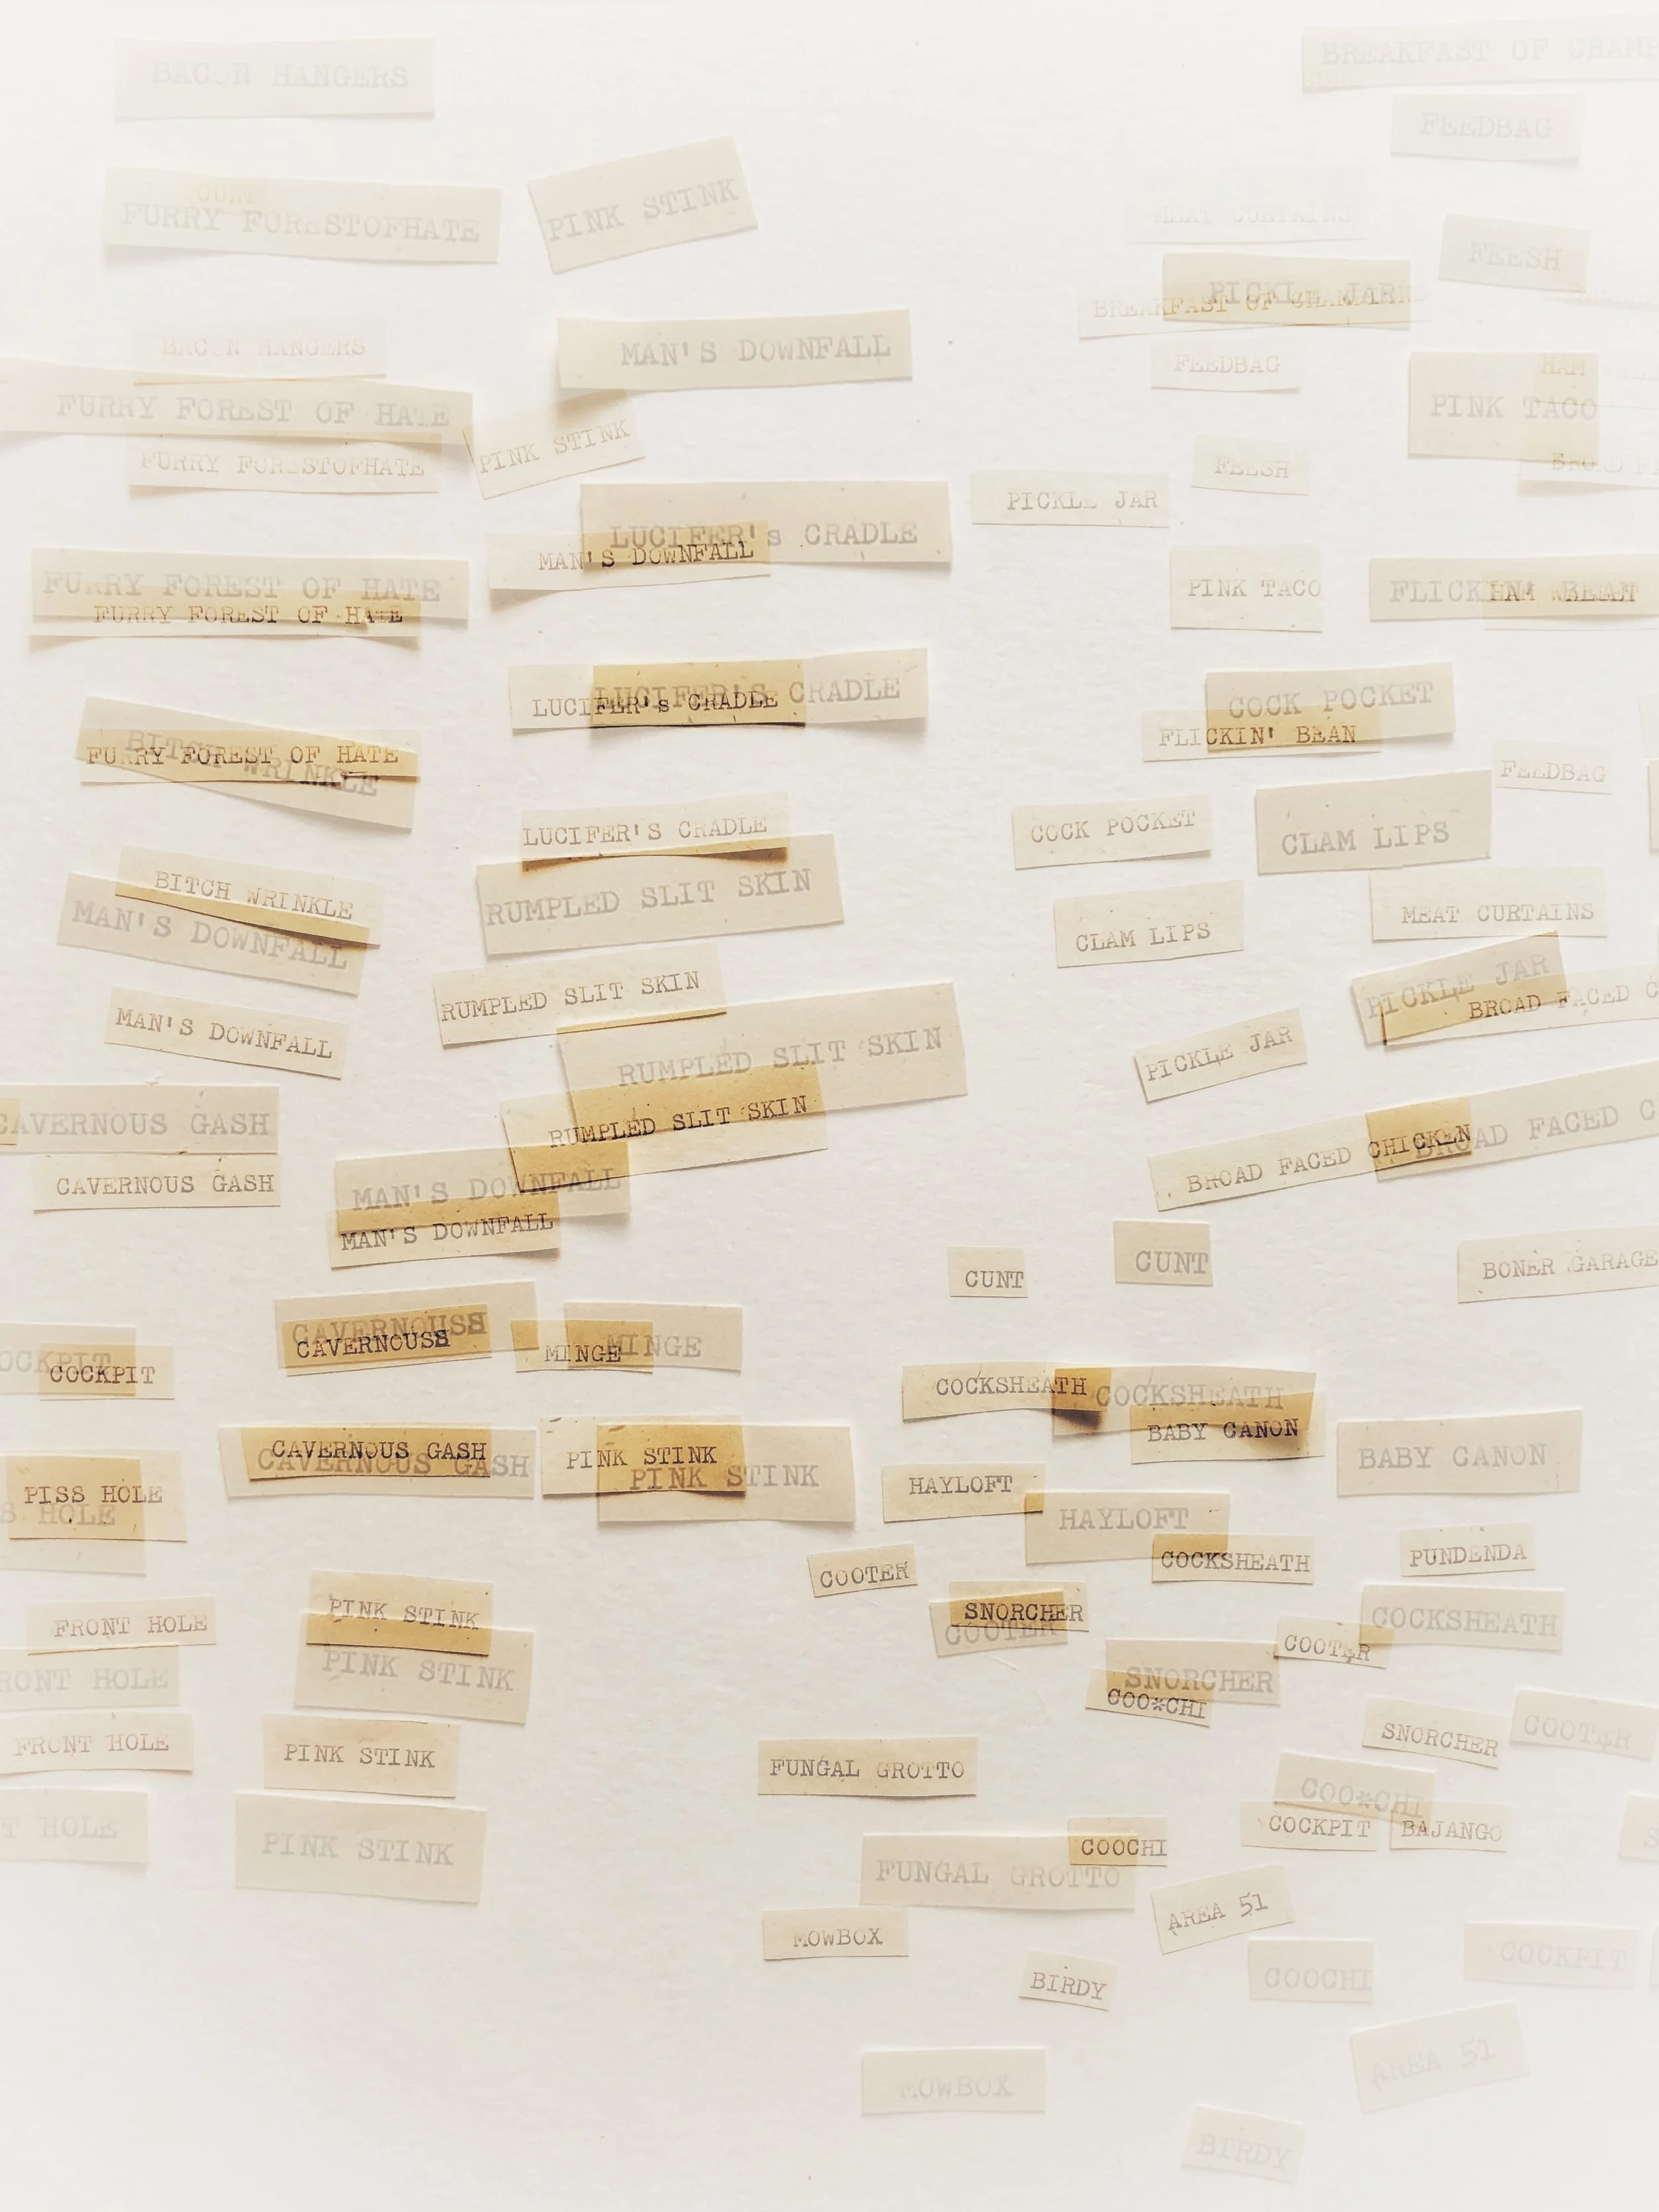 BACON HANGERS
BREAKFAST OF CHAMP
FEEDBAG
CUNT
FURRY FORESTOFHATE
PINK STINK
MEAT CURTAINS
FEESH
PICKLE JAR
BREAKFAST OF CHAMPIONS
MAN'S DOWNFALL
BACON HANGERS
FEEDBAG
HAM
PINK TACO
FURRY FOREST OF HATE
PINK STINK
FURRY FORESTOFHATE
FEESH
BROAD FA
PICKLE JAR
LUCIFER's CRADLE
MAN'S DOWNFALL
FURRY FOREST OF HATE
FURRY FOREST OF HATE
PINK TACO
FLICKIN' BEAN
HAM
LUCIFER'S CRADLE
LUCIFER's CRADLE
COCK POCKET
FLICKIN' BEAN
BITCH WRINKLE
FURRY FOREST OF HATE
FEEDBAG
LUCIFER'S CRADLE
COCK POCKET
CLAM LIPS
RUMPLED SLIT SKIN
BITCH WRINKLE
MAN'S DOWNFALL
MEAT CURTAINS
CLAM LIPS
RUMPLED SLIT SKIN
PICKLE JAR
BROAD FACED C
MAN'S DOWNFALL
RUMPLED SLIT SKIN
PICKLE JAR
CAVERNOUS GASH
RUMPLED SLIT SKIN
BROAD FACED C
BROAD FACED CHICKEN
CAVERNOUS GASH
MAN'S DOWNFALL
MAN'S DOWNFALL
CUNT
CUNT
BONER GARAGE
CAVERNOUSS
CAVERNOUSS
MINGE
MINGE
OCKPIT
COCKPIT
COCKSHEATH
COCKSHEATH
BABY CANON
BABY CANON
CAVERNOUS GASH
CAVERNOUS GASH
PINK STINK
PINK STINK
HAYLOFT
HAYLOFT
PISS HOLE
S HOLE
COCKSHEATH
PUNDENDA
COOTER
SNORCHER
COOTER
PINK STINK
FRONT HOLE
COCKSHEATH
COOTER
PINK STINK
RONT HOLE
SNORCHER
COO*CHI
FRONT HOLE
PINK STINK
SNORCHER
COOTER
FUNGAL GROTTO
COO*CHI
COCKPIT
BAJANGO
T HOLE
PINK STINK
COOCHI
FUNGAL GROTTO
AREA 51
MOWBOX
COCKPIT
BIRDY
COOCHI
AREA 51
MOWBOX
BIRDY